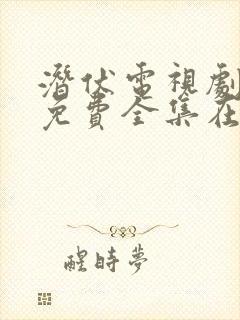 潛伏電視劇
免費全集在
醒時夢